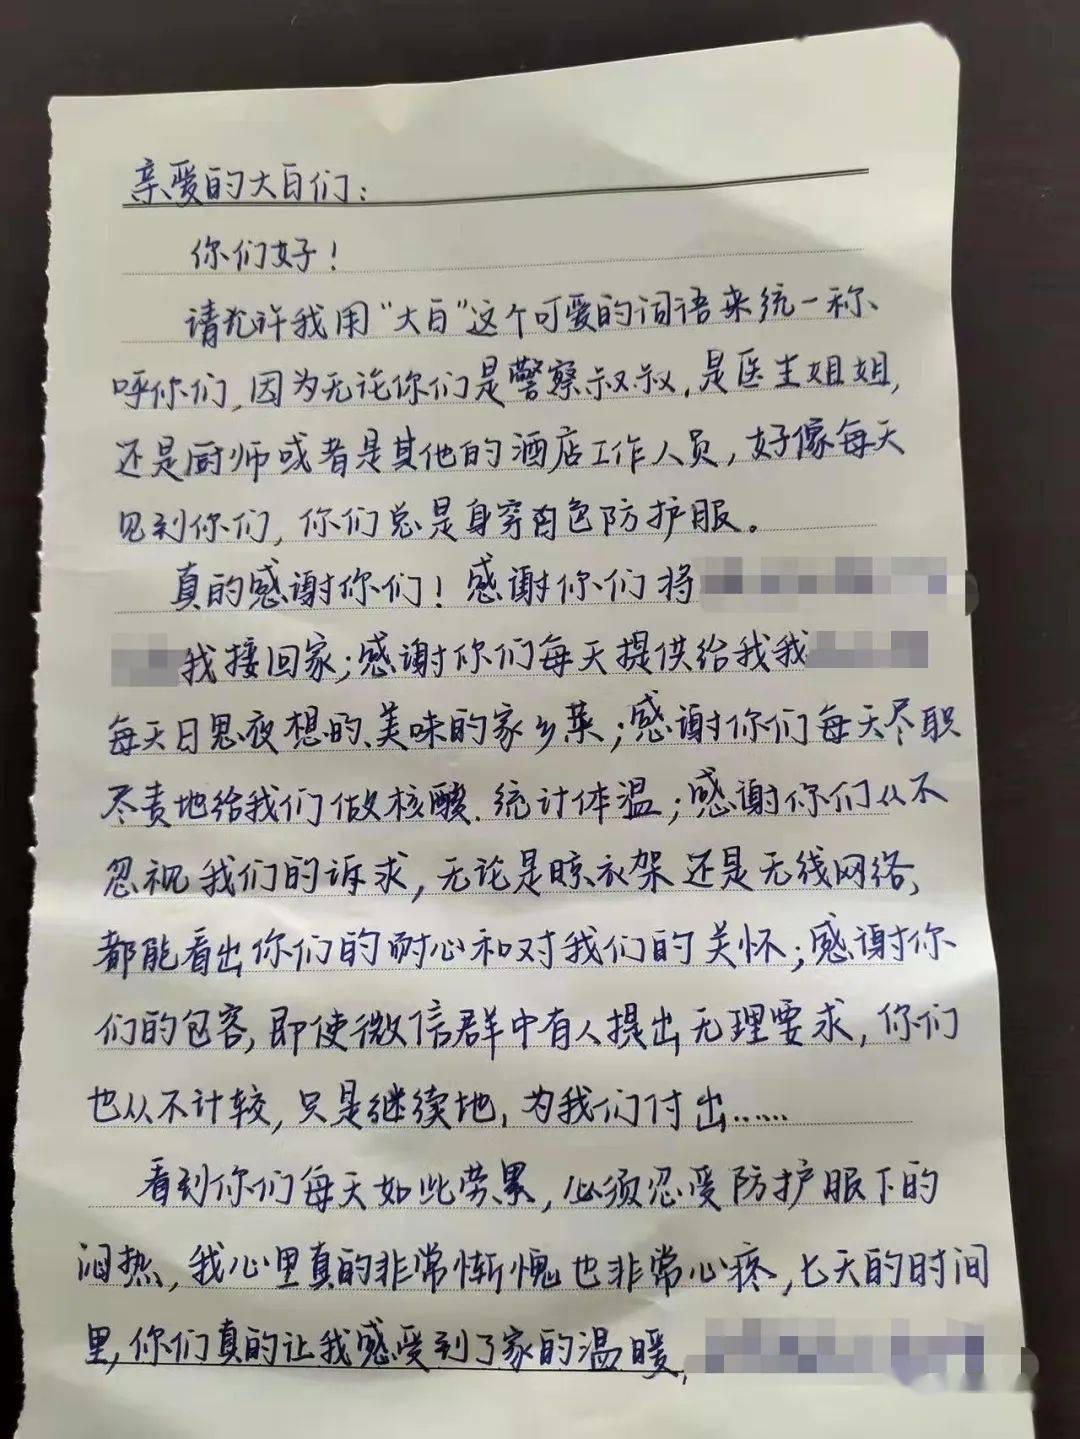 亲爱的大白们：
你们好！
请允许我用“大白”这个可爱的词语来统一称
呼你们，因为无论你们是警察叔叔，是医生姐姐，
还是厨师或者是其他的酒店工作人员，好像每天
见到你们，你们总是身穿白色防护服。
真的感谢你们！感谢你们将
我接回家；感谢你们每天提供给我我
每天日思夜想的、美味的家乡菜；感谢你们每天尽职
尽责地给我们做核酸、统计体温；感谢你们从不
忽视我们的诉求，无论是晾衣架还是无线网络，
都能看出你们的耐心和对我们的关怀；感谢你
们的包容，即使微信群中有人提出无理要求，你们
也从不计较，只是继续地，为我们付出……
看到你们每天如此劳累，必须忍受防护服下的
闷热，我心里真的非常惭愧也非常心疼，七天的时间
里，你们真的让我感受到了家的温暖，